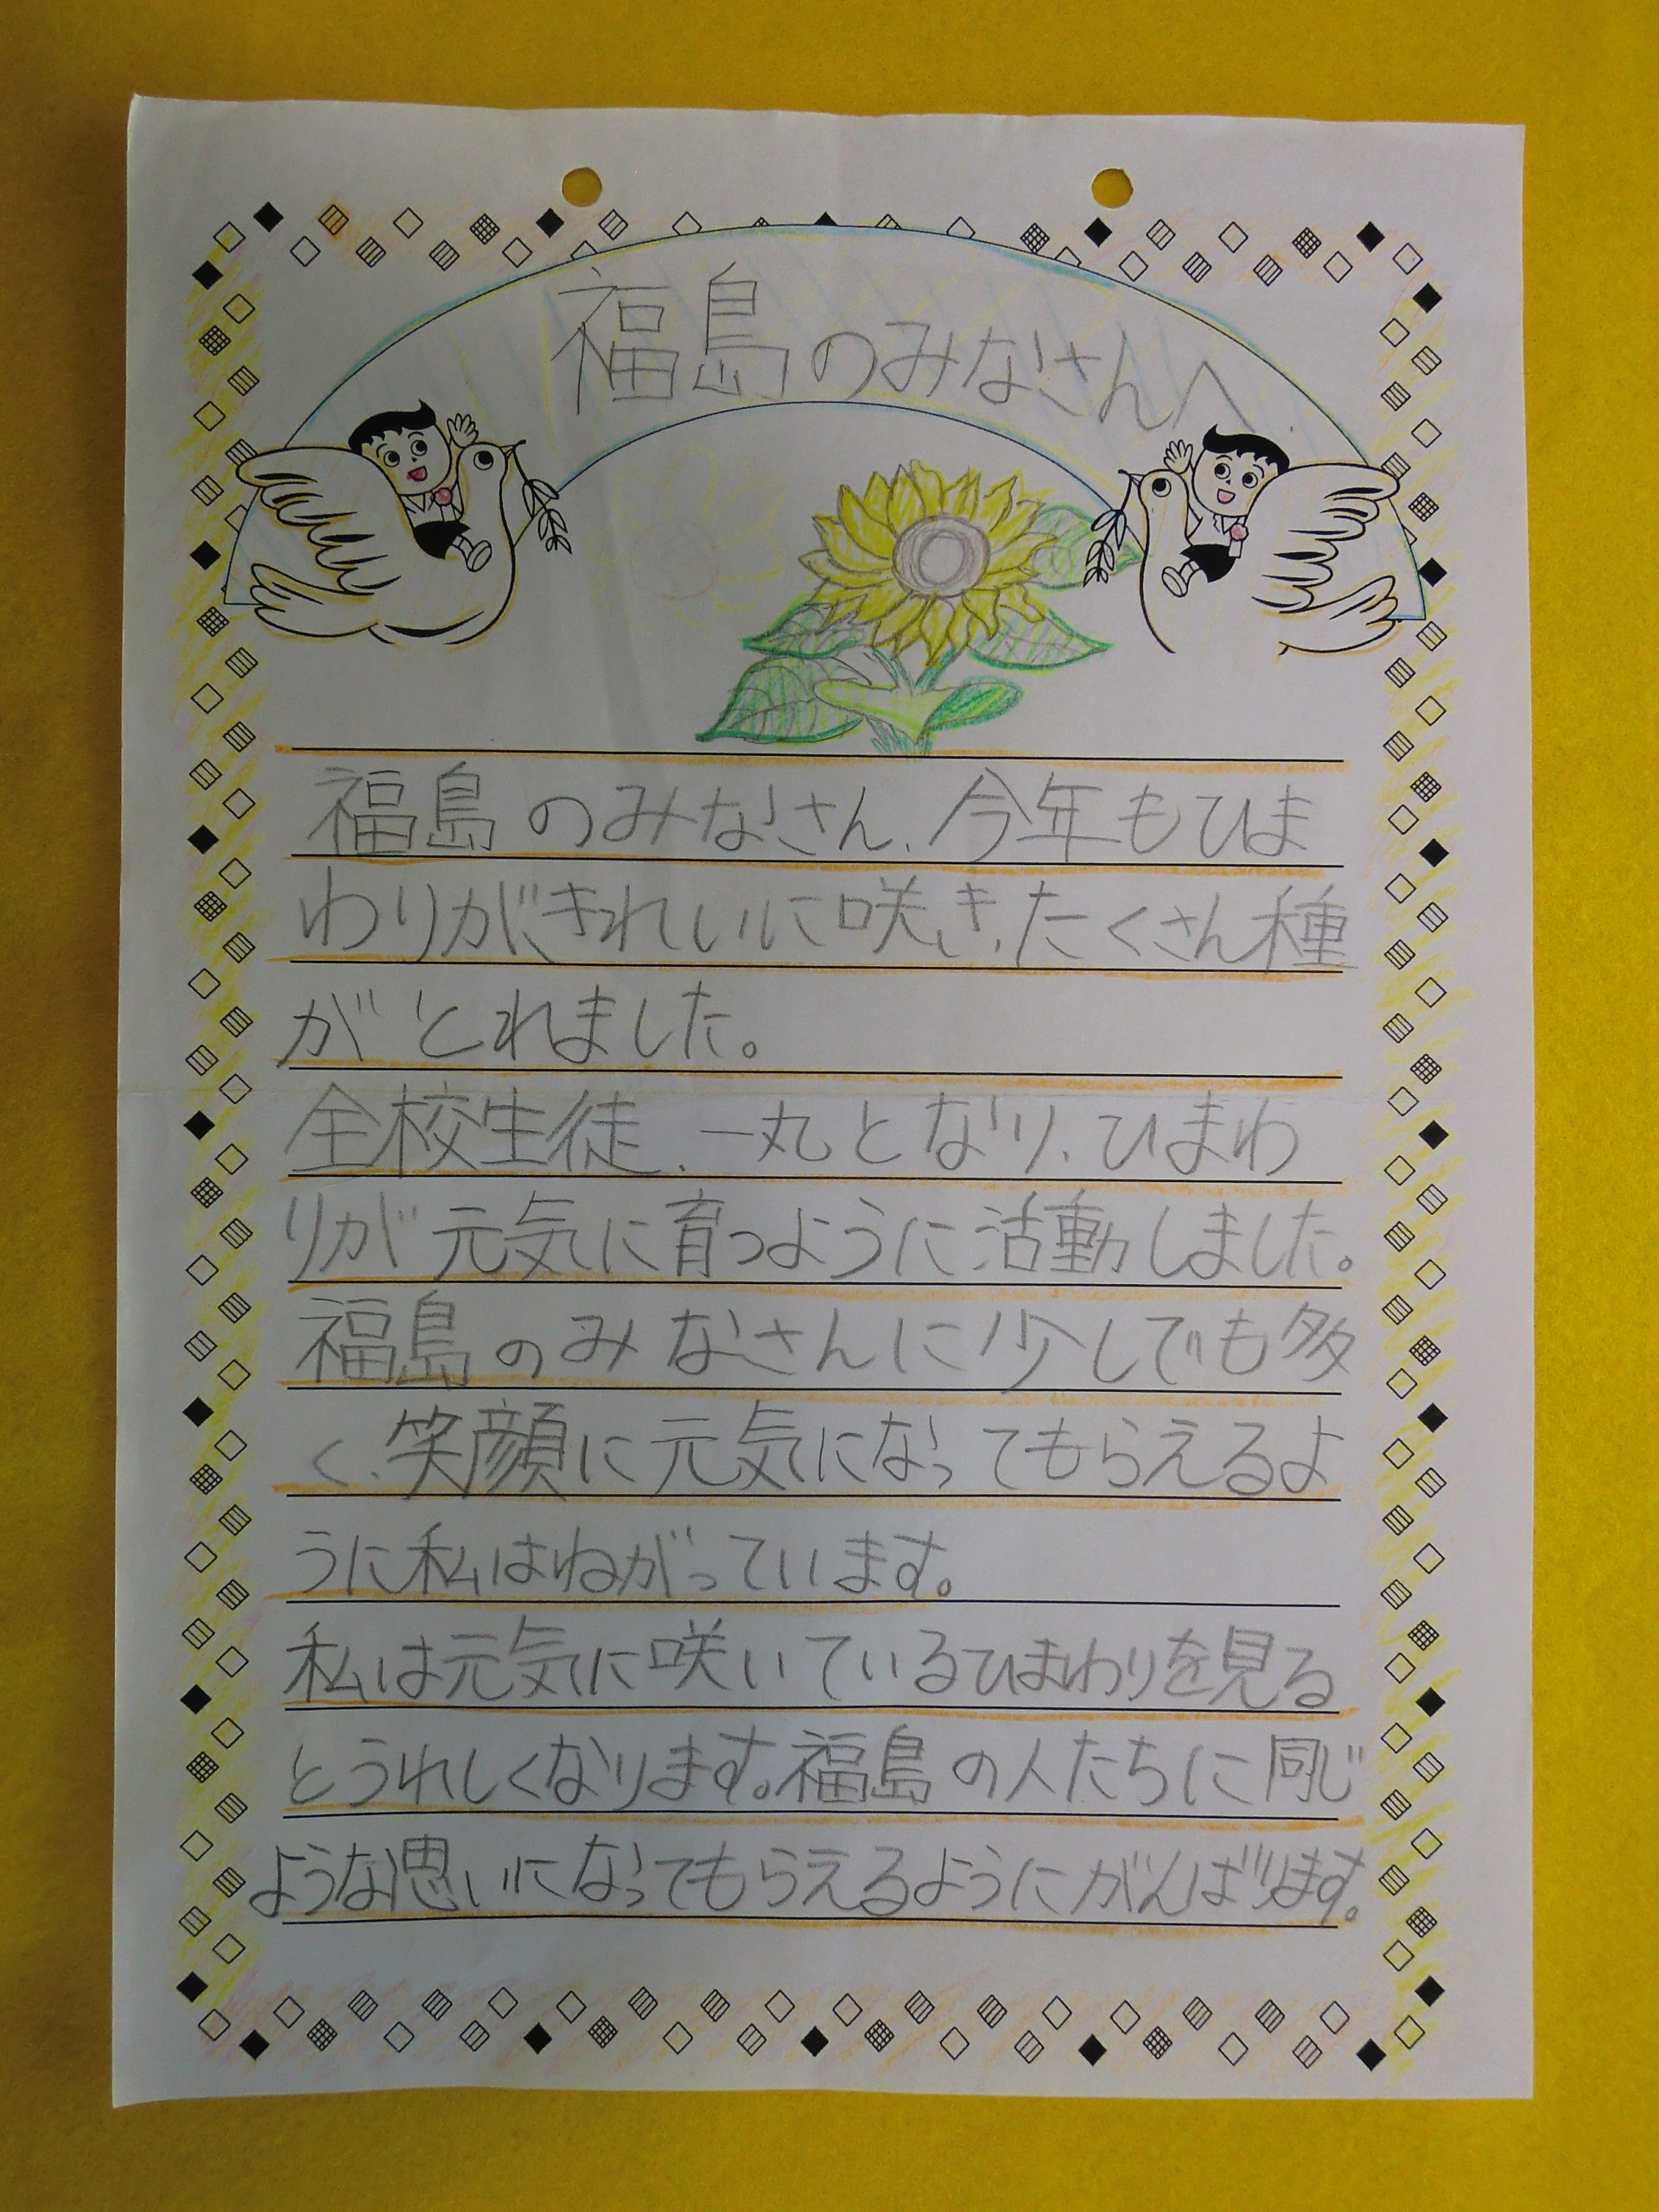 福島のみなさんへ
福島のみなさん、今年もひま
わりがきれいに咲き、たくさん種
がとれました。
全校生徒、一丸となり、ひまわ
りが元気に育つように活動しました。
福島のみなさんに少しでも多
く、笑顔に元気になってもらえるよ
うに私はねがっています。
私は元気に咲いているひまわりを見る
とうれしくなります。福島の人たちに同じ
ような思いになってもらえるようにがんばります。